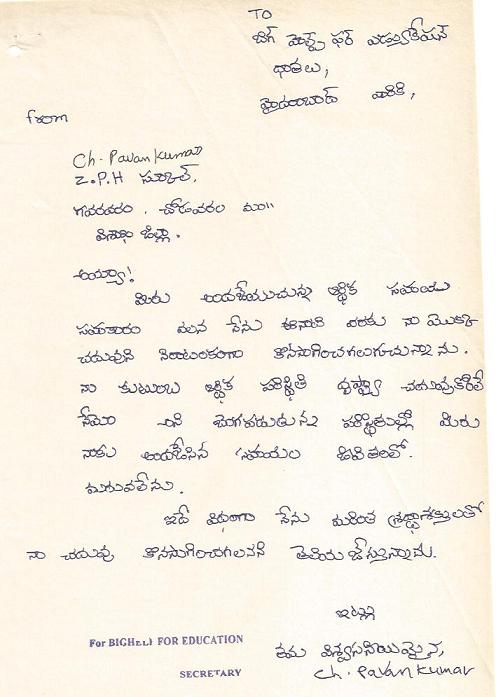 TO
బిగ్ హెల్ప్ ఫర్ ఎడ్యుకేషన్
దాతలు,
హైదరాబాద్ వారికి,
from
Ch. Pavan Kumar
Z.P.H స్కూల్,
గవరవరం, చోడవరం మం॥
విశాఖ జిల్లా.
అయ్యా!
మీరు అందజేయుచున్న ఆర్థిక సహాయ
సహకారం వలన నేను ఈనాటి వరకు నా యొక్క
చదువుని నిరాటంకంగా కొనసాగించగలుగుచున్నాను.
నా కుటుంబ ఆర్థిక పరిస్థితి దృష్ట్యా చదువుకోలే
నేమో అని బెంగపడుతున్న పరిస్థితుల్లో మీరు
నాకు అందజేసిన సహాయం జీవితంలో.
మరువలేను.
ఇదే విధంగా నేను మరింత శ్రద్ధాశక్తులతో
నా చదువు కొనసాగించగలనని తెలియజేస్తున్నాను.
ఇట్లు
తమ విశ్వసనీయుడైన,
Ch. Pavan Kumar
For BIGHELP FOR EDUCATION
SECRETARY